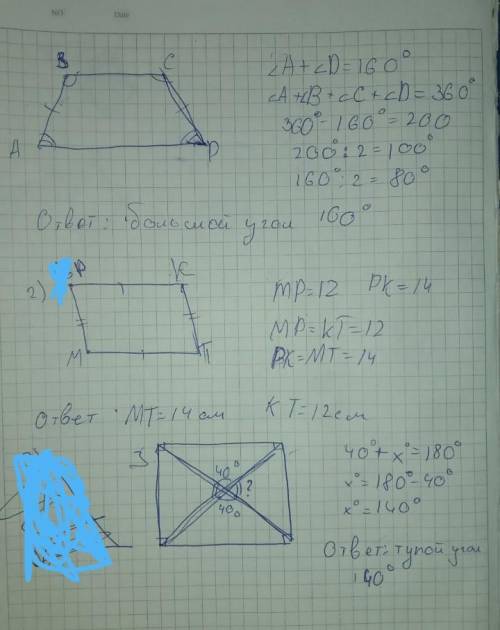 B C
A D
∠A+∠D=160°
∠A+∠B+∠C+∠D=360°
360°-160°=200
200°:2=100°
160°:2=80°
Ответ: большой угол 160°
2) P K
M T
MP=12 PK=14
MP=KT=12
PK=MT=14
Ответ MT=14см KT=12см
3
40°
?
40°
40°+x°=180°
x°=180°-40°
x°=140°
Ответ: тупой угол
140°